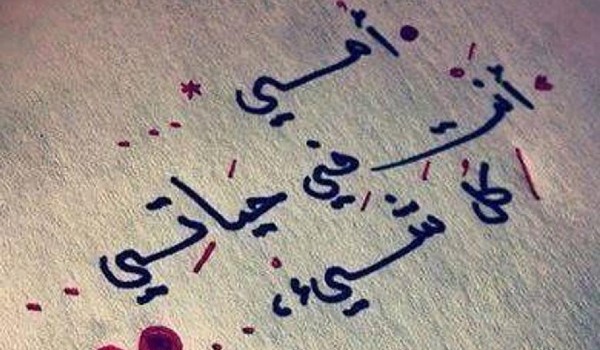 أمي
أنتِ في حياتي
كل شيء،